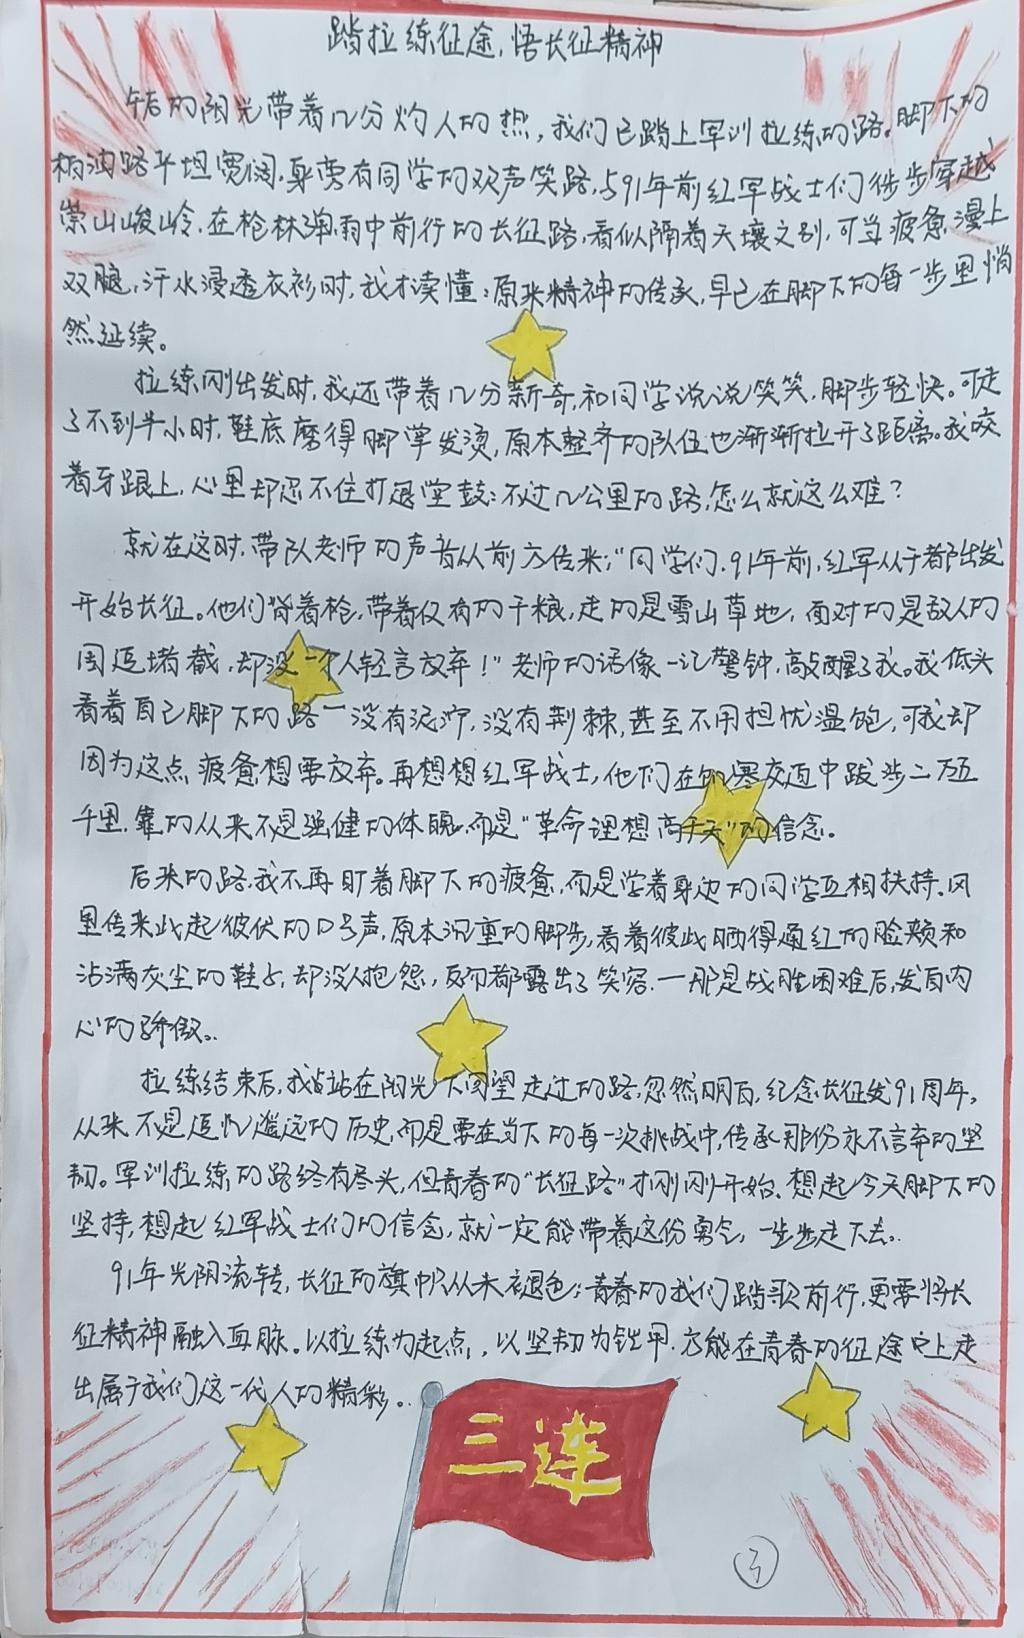 踏拉练征途,悟长征精神
午后的阳光带着几分灼人的热,我们已踏上军训拉练的路。脚下的
柏油路平坦宽阔,身旁有同学的欢声笑路,与91年前红军战士们徒步穿越
崇山峻岭,在枪林弹雨中前行的长征路,看似隔着天壤之别,可当疲惫漫上
双腿,汗水浸透衣衫时,我才读懂:原来精神的传承,早已在脚下的每一步里悄
然延续。
拉练刚出发时,我还带着几分新奇,和同学说说笑笑,脚步轻快。可走
了不到半小时,鞋底磨得脚掌发烫,原本整齐的队伍也渐渐拉开了距离。我咬
着牙跟上,心里却忍不住打退堂鼓:不过几公里的路,怎么就这么难?
就在这时,带队老师的声音从前方传来:"同学们,91年前,红军从于都出发
开始长征。他们背着枪,带着仅有的干粮,走的是雪山草地,面对的是敌人的
围追堵截,却没一个人轻言放弃!"老师的话像一记警钟,敲醒了我。我低头
看着自己脚下的路一没有泥泞,没有荆棘,甚至不用担忧温饱,可我却
因为这点疲惫想要放弃。再想想红军战士,他们在饥寒交迫中跋涉二万五
千里,靠的从来不是强健的体魄,而是"革命理想高于天"的信念。
后来的路,我不再盯着脚下的疲惫,而是学着身边的同学互相扶持。风
里传来此起彼伏的口号声,原本沉重的脚步,看着彼此晒得通红的脸颊和
沾满灰尘的鞋子,却没人抱怨,反而都露出了笑容.一那是战胜困难后,发自内
心的骄傲。
拉练结束后,我站在阳光下回望走过的路,忽然明白,纪念长征发91周年,
从来不是追忆遥远的历史,而是要在当下的每一次挑战中,传承那份永不言弃的坚
韧。军训拉练的路终有尽头,但青春的"长征路"才刚刚开始。想起今天脚下的
坚持,想起红军战士们的信念,就一定能带着这份勇气,一步步走下去。
91年光阴流转,长征的旗帜从未褪色;青春的我们踏歌前行,更要将长
征精神融入血脉。以拉练为起点,以坚韧为铠甲,方能在青春的征途上走
出属于我们这一代人的精彩。
三连